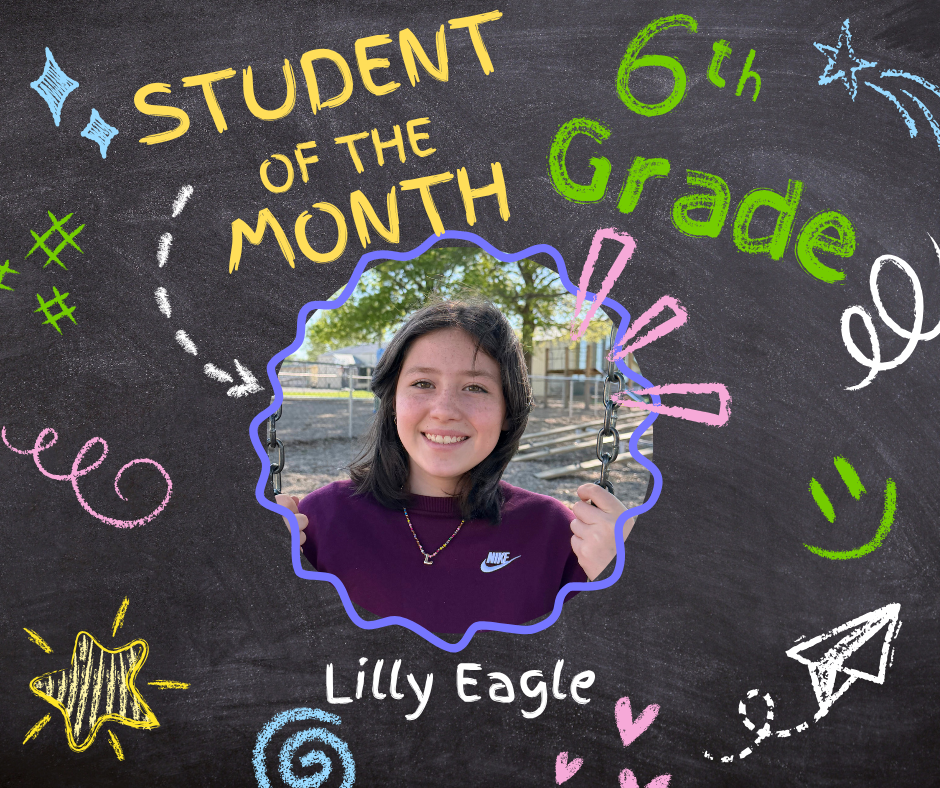 STUDENT
OF THE
MONTH
6th
Grade
NIKE
L
Lilly Eagle